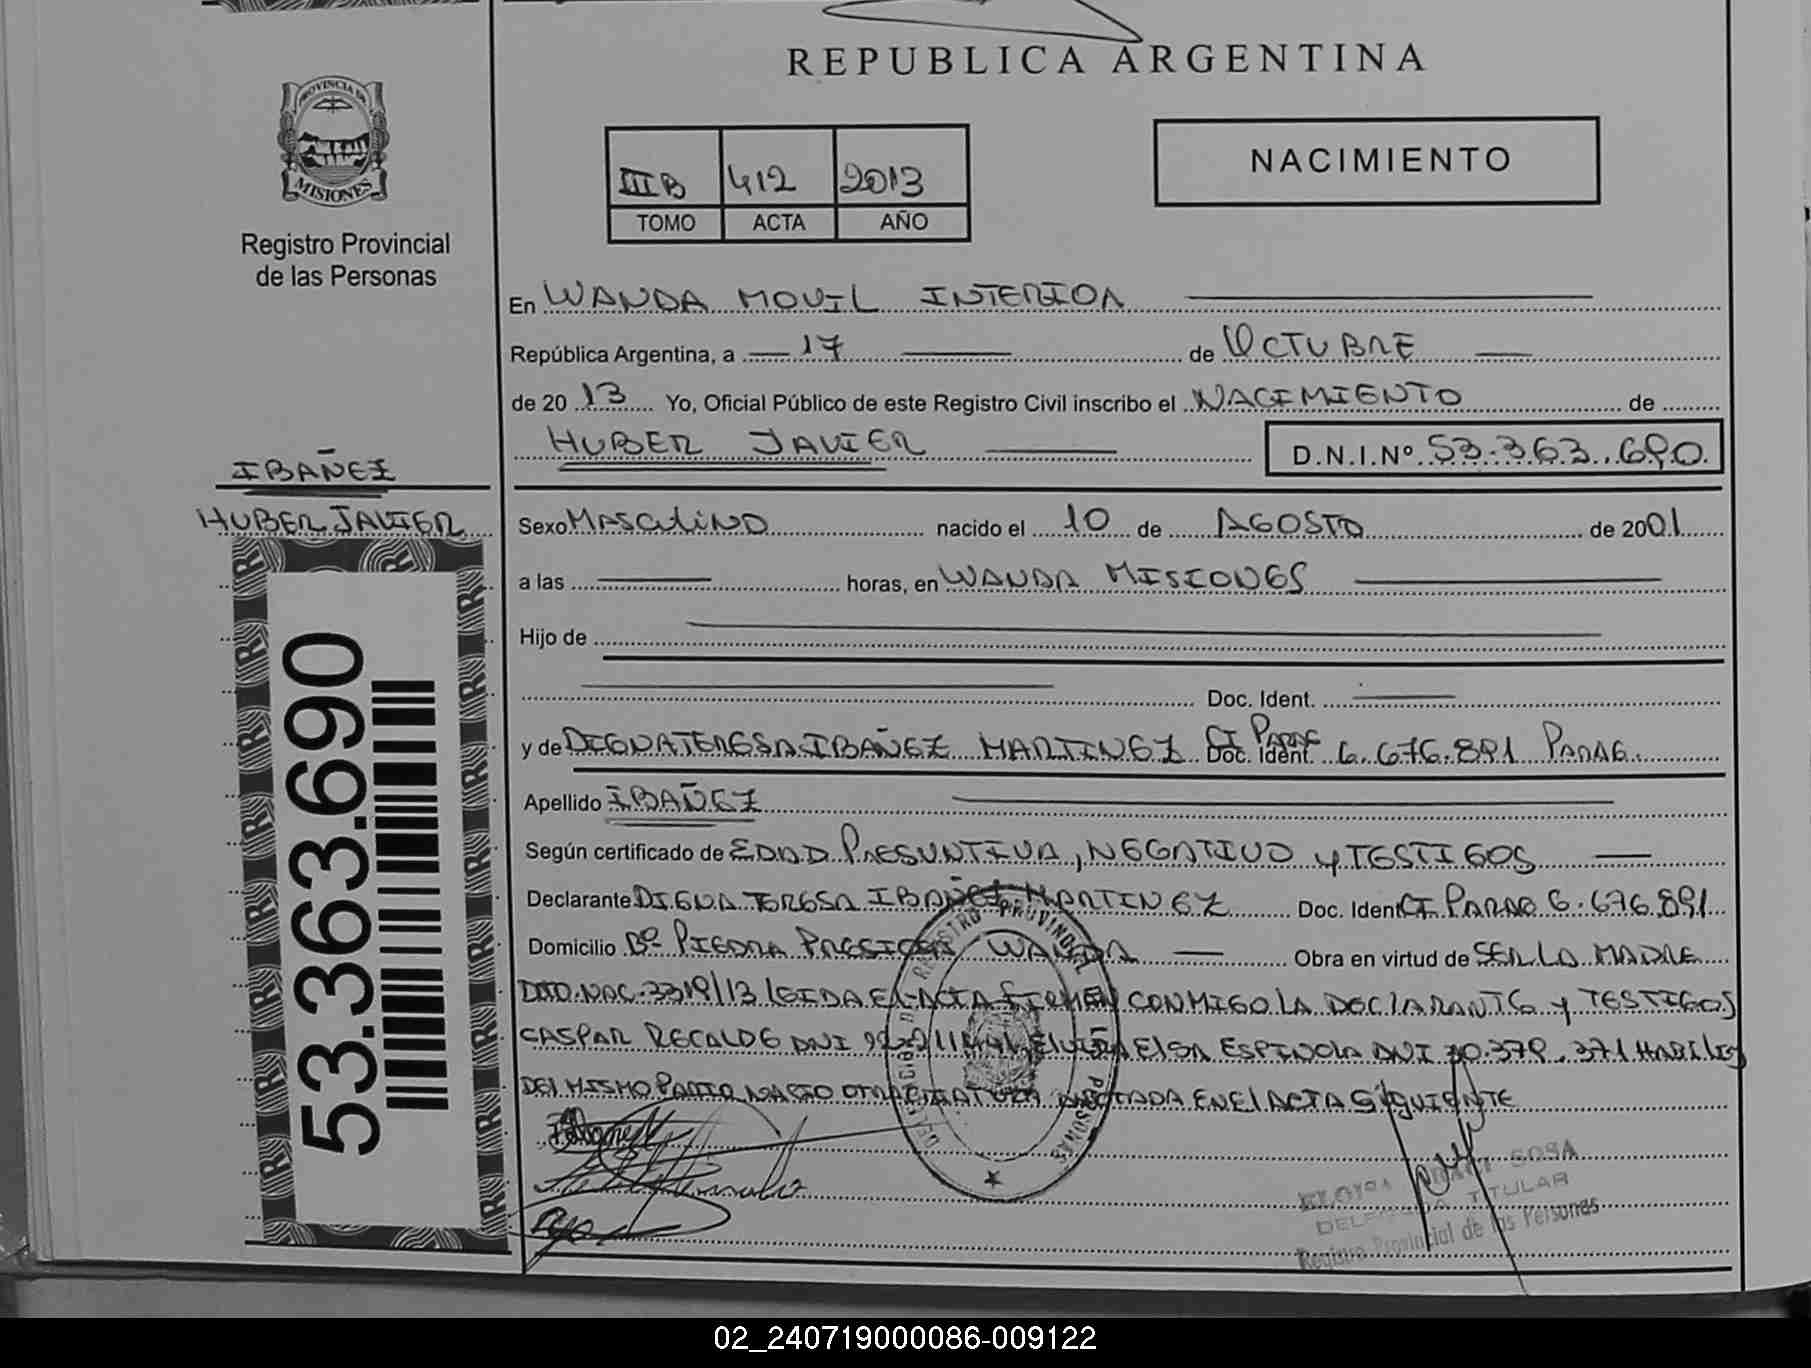 REPUBLICA ARGENTINA
PROVINCIA DE
MISIONES
Registro Provincial
de las Personas
III B 412 2013
TOMO ACTA AÑO
NACIMIENTO
En WANDA MOVIL INTERIOR
República Argentina, a 17 de OCTUBRE
de 20 13 Yo, Oficial Público de este Registro Civil inscribo el NACIMIENTO de
HUBER JAVIER D.N.I.Nº 53.363.690
IBAÑEZ
HUBER JAVIER
53.363.690
Sexo MASCULINO nacido el 10 de AGOSTO de 2001
a las horas, en WANDA MISIONES
Hijo de
Doc. Ident.
y de DIGNA TERESA IBAÑEZ MARTINEZ CI PARAG Doc. Ident. 6.676.891 PARAG.
Apellido IBAÑEZ
Según certificado de EDAD PRESUNTIVA, NEGATIVO y TESTIGOS
Declarante DIGNA TERESA IBAÑEZ MARTINEZ Doc. Ident CI PARAG 6.676.891
Domicilio Bº PIEDRA WANDA Obra en virtud de SER LA MADRE
NAC. 3319/13 LEIDA EL ACTA FIRMEN CONMIGO LA DECLARANTE y TESTIGOS
GASPAR RECALDE DNI ELSA ESPINOLA DNI HABILES
DEL MISMO PARTO NACIO OTRA CRIATURA ANOTADA EN EL ACTA SIGUIENTE
REGISTRO PROVINCIAL PERSONAS
SOSA
TITULAR
Registro Provincial de las Personas
02_240719000086-009122